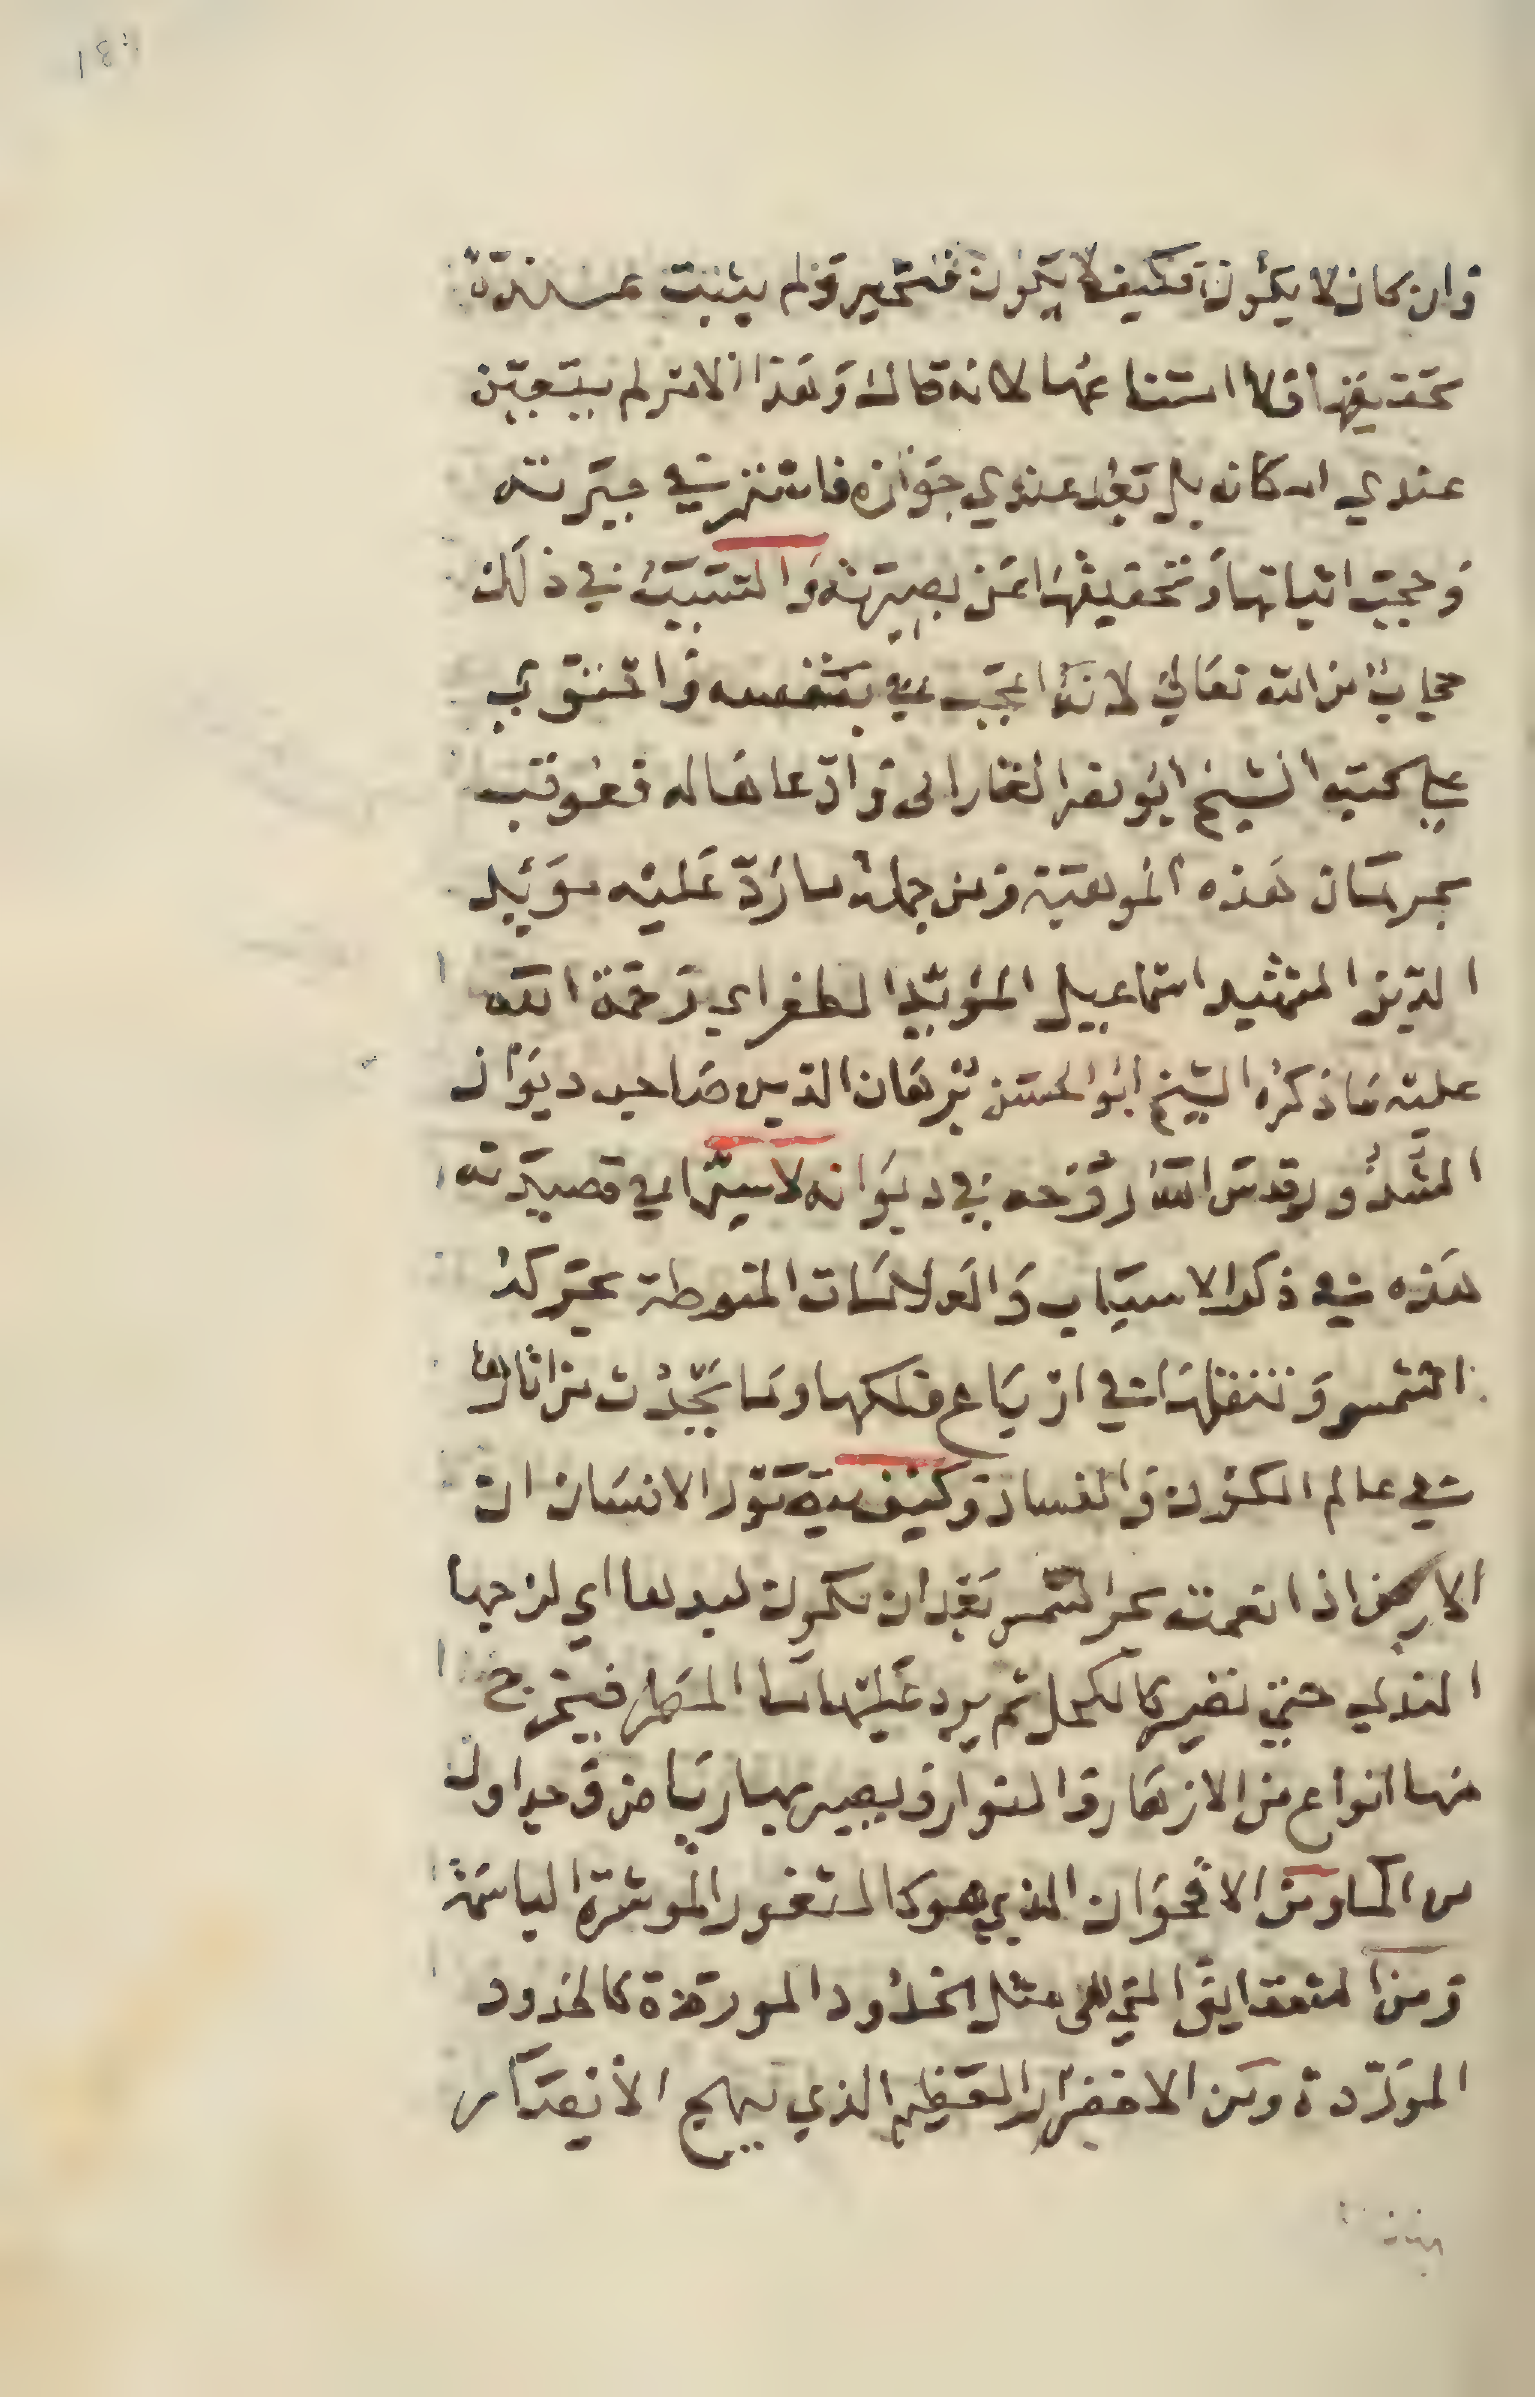 وان كان لا يكون فكيف لا يكون فتحير ولم يثبت عنده
تحقيقها ولا امتناعها لانه قال وهذا الامر لم يتبين
عندي امكانه بل بعد عندي جوازه فاستمر في حيرته
وحجب اثباتها وتحقيقها عن بصيرته والتسبب في ذلك
حجاب من الله تعالى لانه اعجب بنفسه واستوى
على كتب الشيخ ابو نصر الفارابى وادعاها له فعوقب
بحرمان هذه الموهبة ومن جملة ما رد عليه مويد
الدين الشهيد اسماعيل المؤيد الطغراي رحمة الله
عليه ما ذكره الشيخ ابو الحسن برهان الدين صاحب ديوان
الشذور قدس الله روحه في ديوانه لا سيما في قصيدته
هذه في ذكر الاسباب والعلامات المنوطة بحركة
الشمس وتنقلها في ارباع فلكها وما يحدث من اثارها
في عالم الكون والفساد وكيفية تود الانسان ان
الارض اذا نعمت بحر الشمس بعد ان يكون لبدها اي لزجها
الندي حتى تصير كالكحل ثم يرد عليها ما المطر فيخرج
منها انواع من الازهار والنوار ويصير بها رياض وجداول
من الما ومن الاقحوان الذي هو كالثغور الموشرة الباسمة
ومن الشقايق التي هى مثل الخدود الموردة كالخدود
الموردة ومن الاخضرار العظيم الذي يبهج الابصار